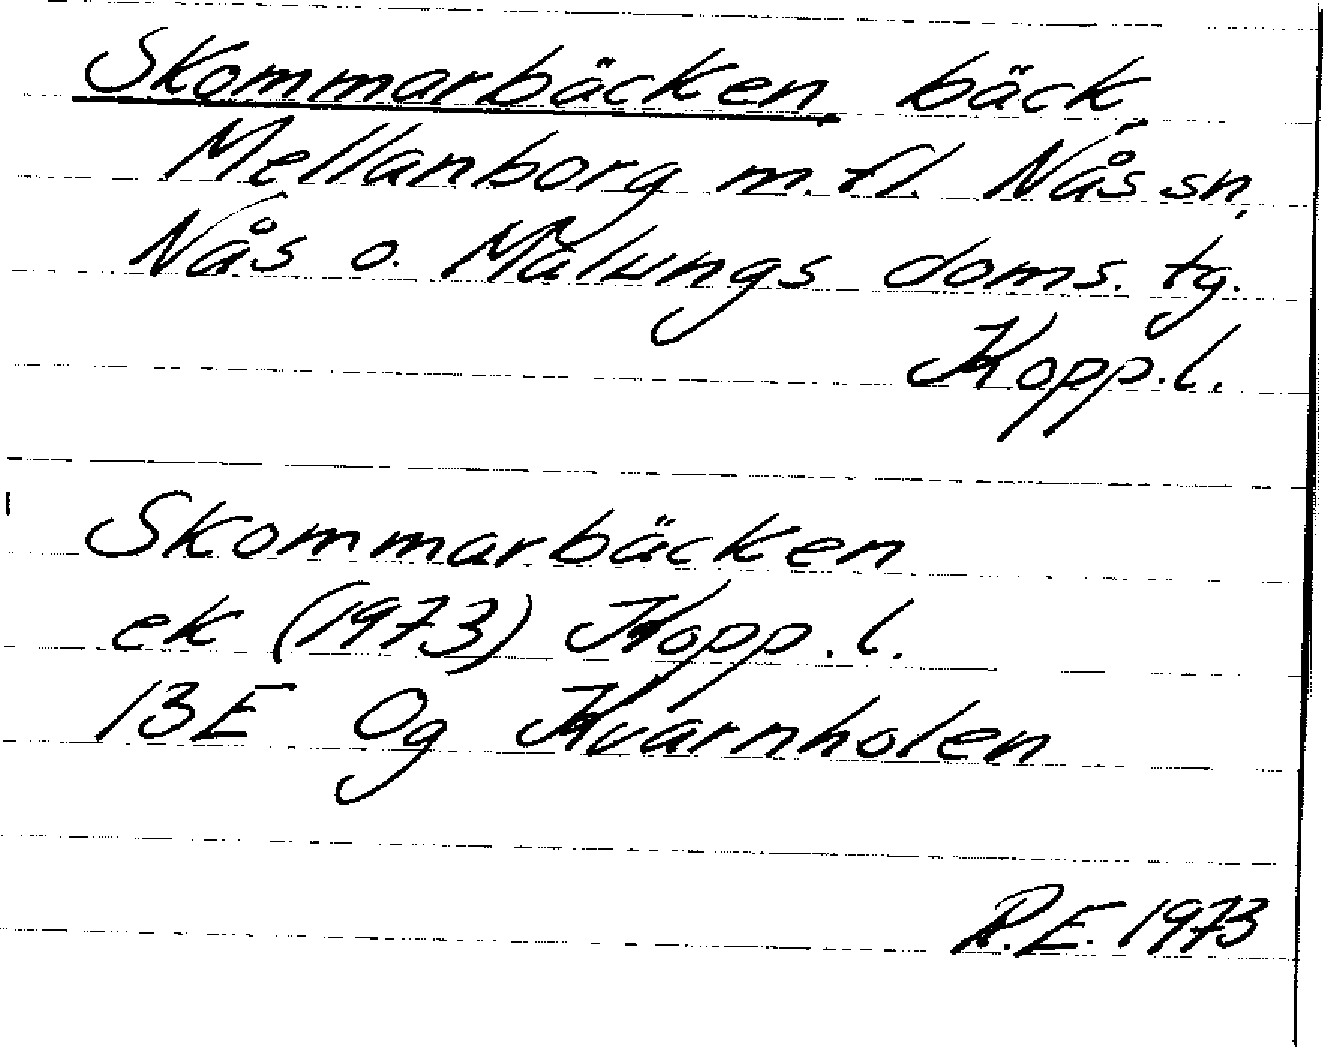 Skommarbäcken, bäck,
Mellanborg m.fl. Nås sn,
Nås o. Malungs doms. tg.
Kopp.l.
Skommarbäcken
ek (1973) Kopp.l.
13E 0g Kvarnholen
R.E. 1973